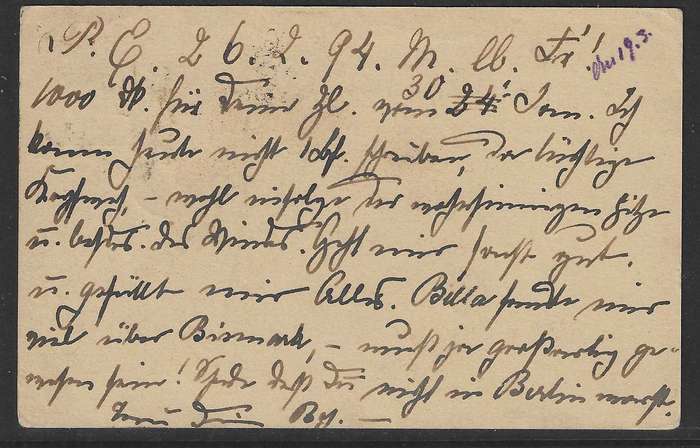 P. E. 26.2.94. M. lb. Fr!
An 19.3.
1000 Dk. für Deine Zl. vom 30 24! Jan. Ich
kann heute nicht 1 Bf. schreiben, da tüchtige
Kopfweh, – wohl infolge der wahnsinnigen Hitze
u. besds. des Windes. Geht mir sonst gut,
u. gefällt mir Alles. Bitte sende mir
viel über Bismark, – muß ja großartig ge-
wesen sein! Schade daß Du nicht in Berlin warst.
Dein